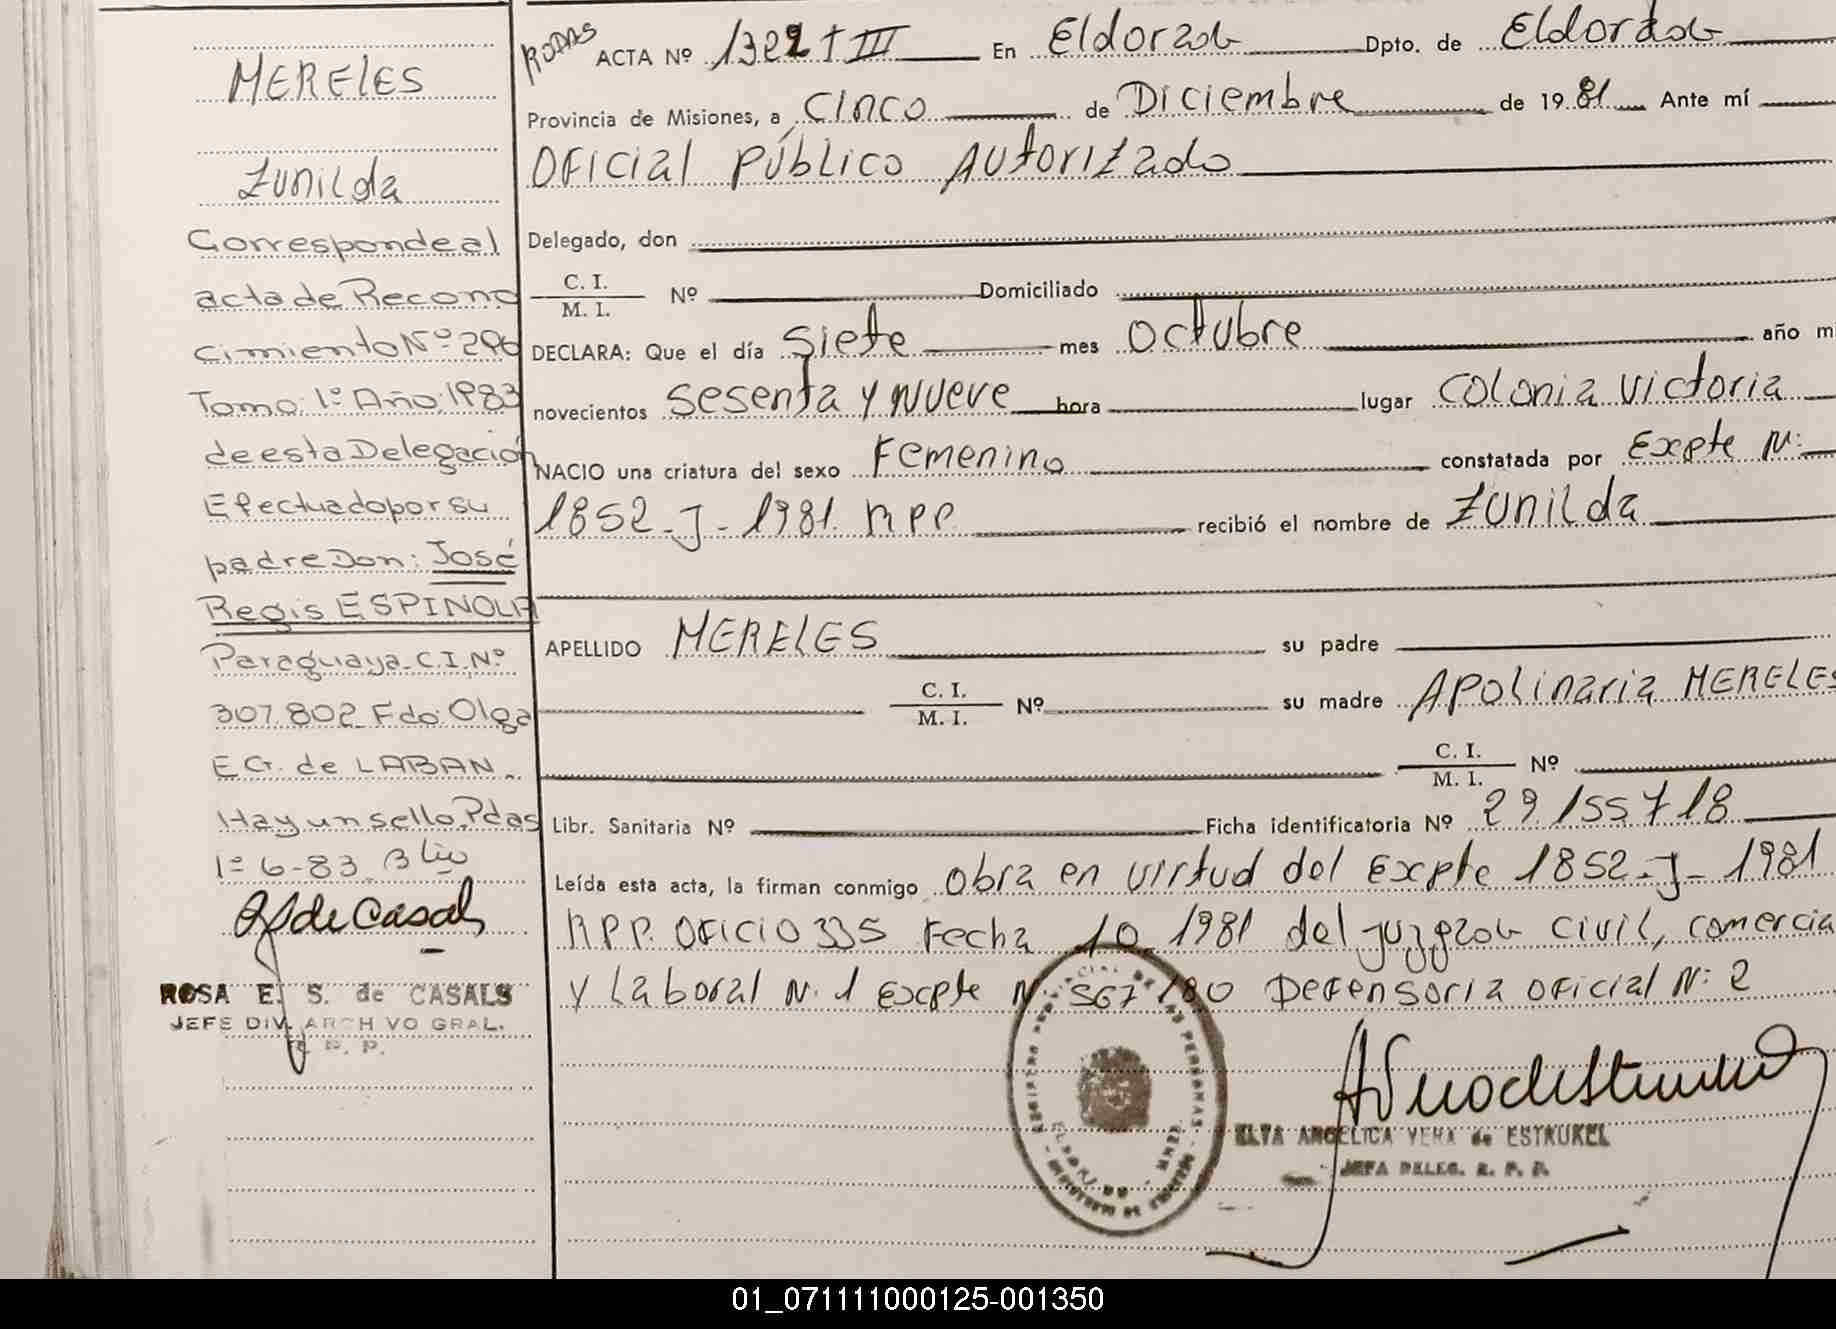 MERELES
Zunilda
Corresponde al
acta de Recono
cimiento Nº 290
Tomo: 1º Año 1983
de esta Delegación
Efectuado por su
padre Don: José
Regis ESPINOLA
Paraguaya-C.I.Nº
307.802 Fdo: Olga
E.G. de LABAN.
Hay un sello. Pdas
1º-6-83
ROSA E. S. de CASALS
JEFE DIV. ARCHIVO GRAL.
R. P. P.
RODAS ACTA Nº 1322 T III En Eldorado Dpto. de Eldorado
Provincia de Misiones, a Cinco de Diciembre de 1981 Ante mí
Oficial Público Autorizado
Delegado, don
C. I.
M. I. Nº Domiciliado
DECLARA: Que el día Siete mes Octubre año m
novecientos Sesenta y Nueve hora lugar Colonia Victoria
NACIO una criatura del sexo Femenino constatada por Expte N:
1852-J-1981. RPP. recibió el nombre de Zunilda
APELLIDO MERELES su padre
C. I.
M. I. Nº su madre Apolinaria MERELES
C. I.
M. I. Nº
Libr. Sanitaria Nº Ficha identificatoria Nº 29.155718
Leída esta acta, la firman conmigo Obra en virtud del Expte 1852-J-1981
RPP. Oficio 335 Fecha 10.1981 del juzgado Civil, comercia
y Laboral N. 1 Expte N. 567/80 Defensoria Oficial N: 2
ELVA ANGELICA VERA de ESTRUKEL
JEFA DELEG. R. P. P.
01_071111000125-001350